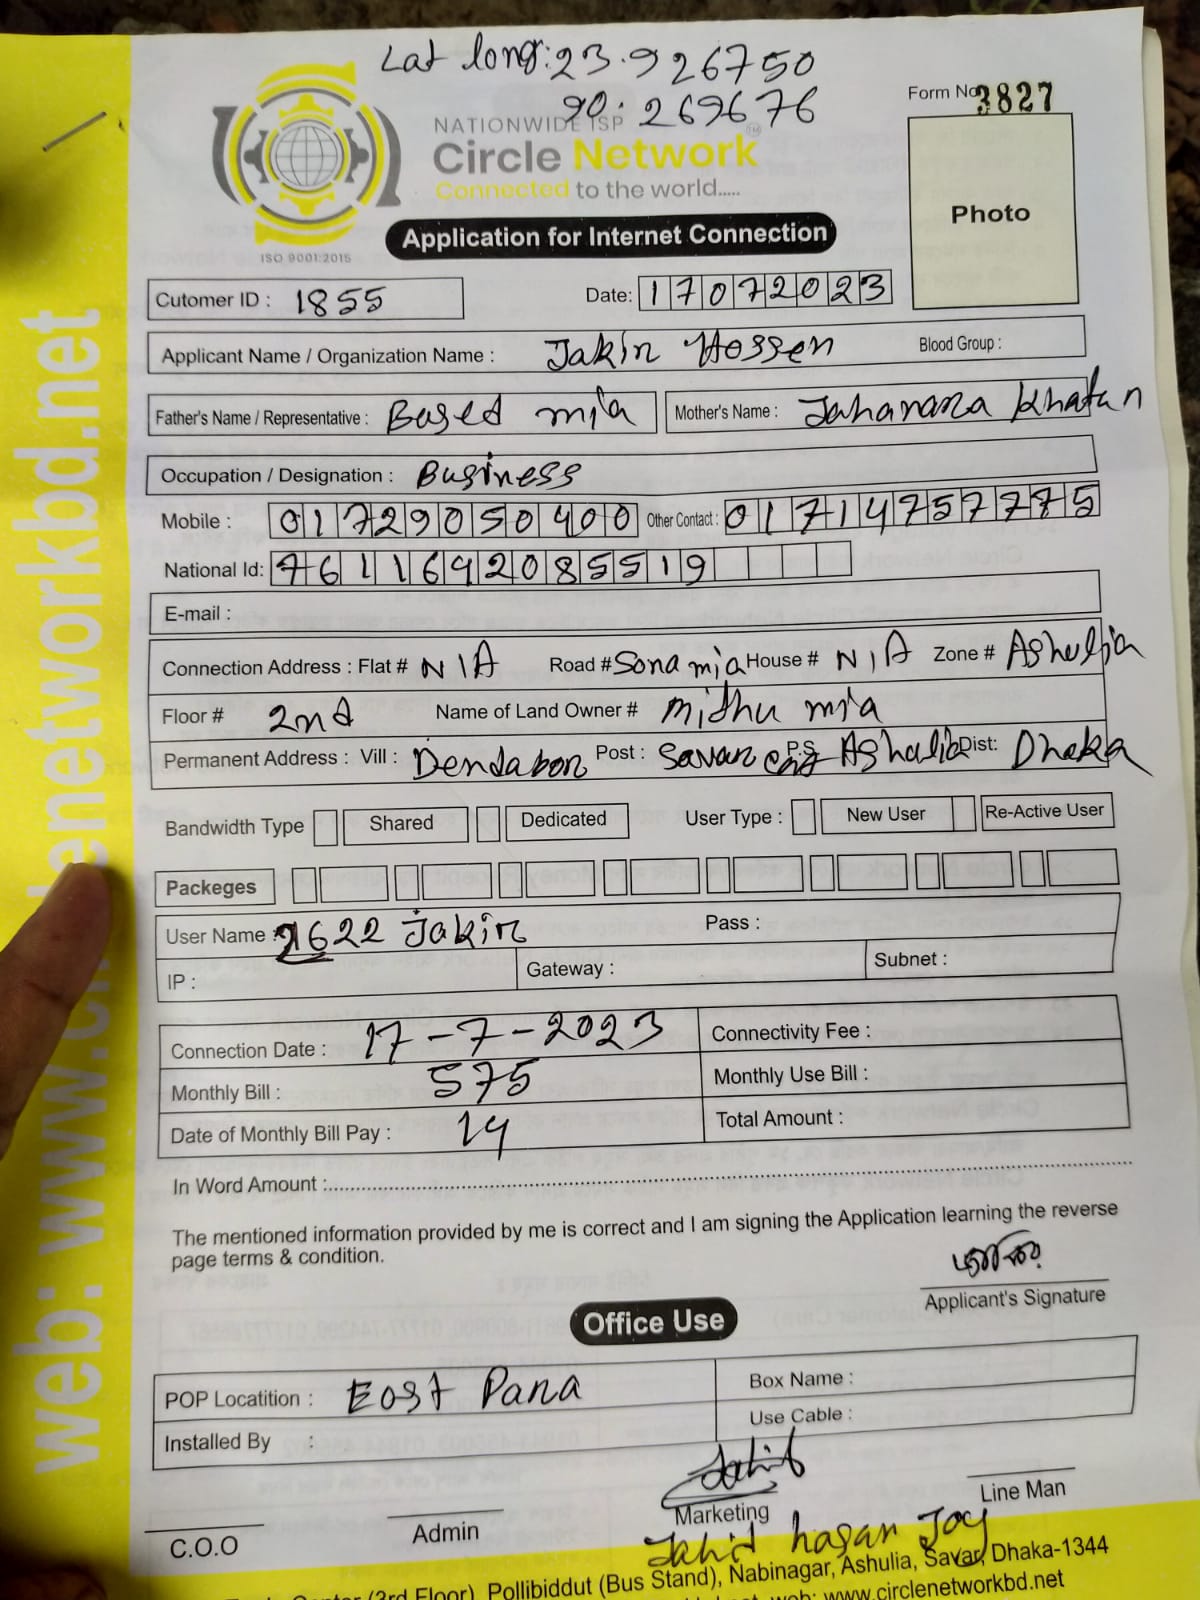 Lat long: 23.926750
90.269676
Form No 3827
NATIONWIDE ISP
Circle Network
TM
Connected to the world.....
ISO 9001:2015
Application for Internet Connection
Photo
Cutomer ID : 1855
Date: 17072023
Applicant Name / Organization Name : Jakir Hossen Blood Group :
Father's Name / Representative : Based mia Mother's Name : Jahanara Khatun
Occupation / Designation : Business
Mobile : 01729050400 Other Contact : 01714757775
National Id: 7611692085519
E-mail :
Connection Address : Flat # N/A Road # Sona mia House # N/A Zone # Ashulia
Floor # 2nd Name of Land Owner # Mithu mia
Permanent Address : Vill : Dendabor Post : Savar P.S Ashulia Dist: Dhaka
Bandwidth Type Shared Dedicated User Type : New User Re-Active User
Packeges
User Name : 1622 Jakir Pass :
IP : Gateway : Subnet :
Connection Date : 17-7-2023 Connectivity Fee :
Monthly Bill : 575 Monthly Use Bill :
Date of Monthly Bill Pay : 14 Total Amount :
In Word Amount :
The mentioned information provided by me is correct and I am signing the Application learning the reverse
page terms & condition.
Applicant's Signature
Office Use
POP Locatition : East Para Box Name :
Installed By : Use Cable :
Jahid
C.O.O Admin Marketing Line Man
Jahid hasan Joy
(3rd Floor), Pollibiddut (Bus Stand), Nabinagar, Ashulia, Savar, Dhaka-1344
web: www.circlenetworkbd.net